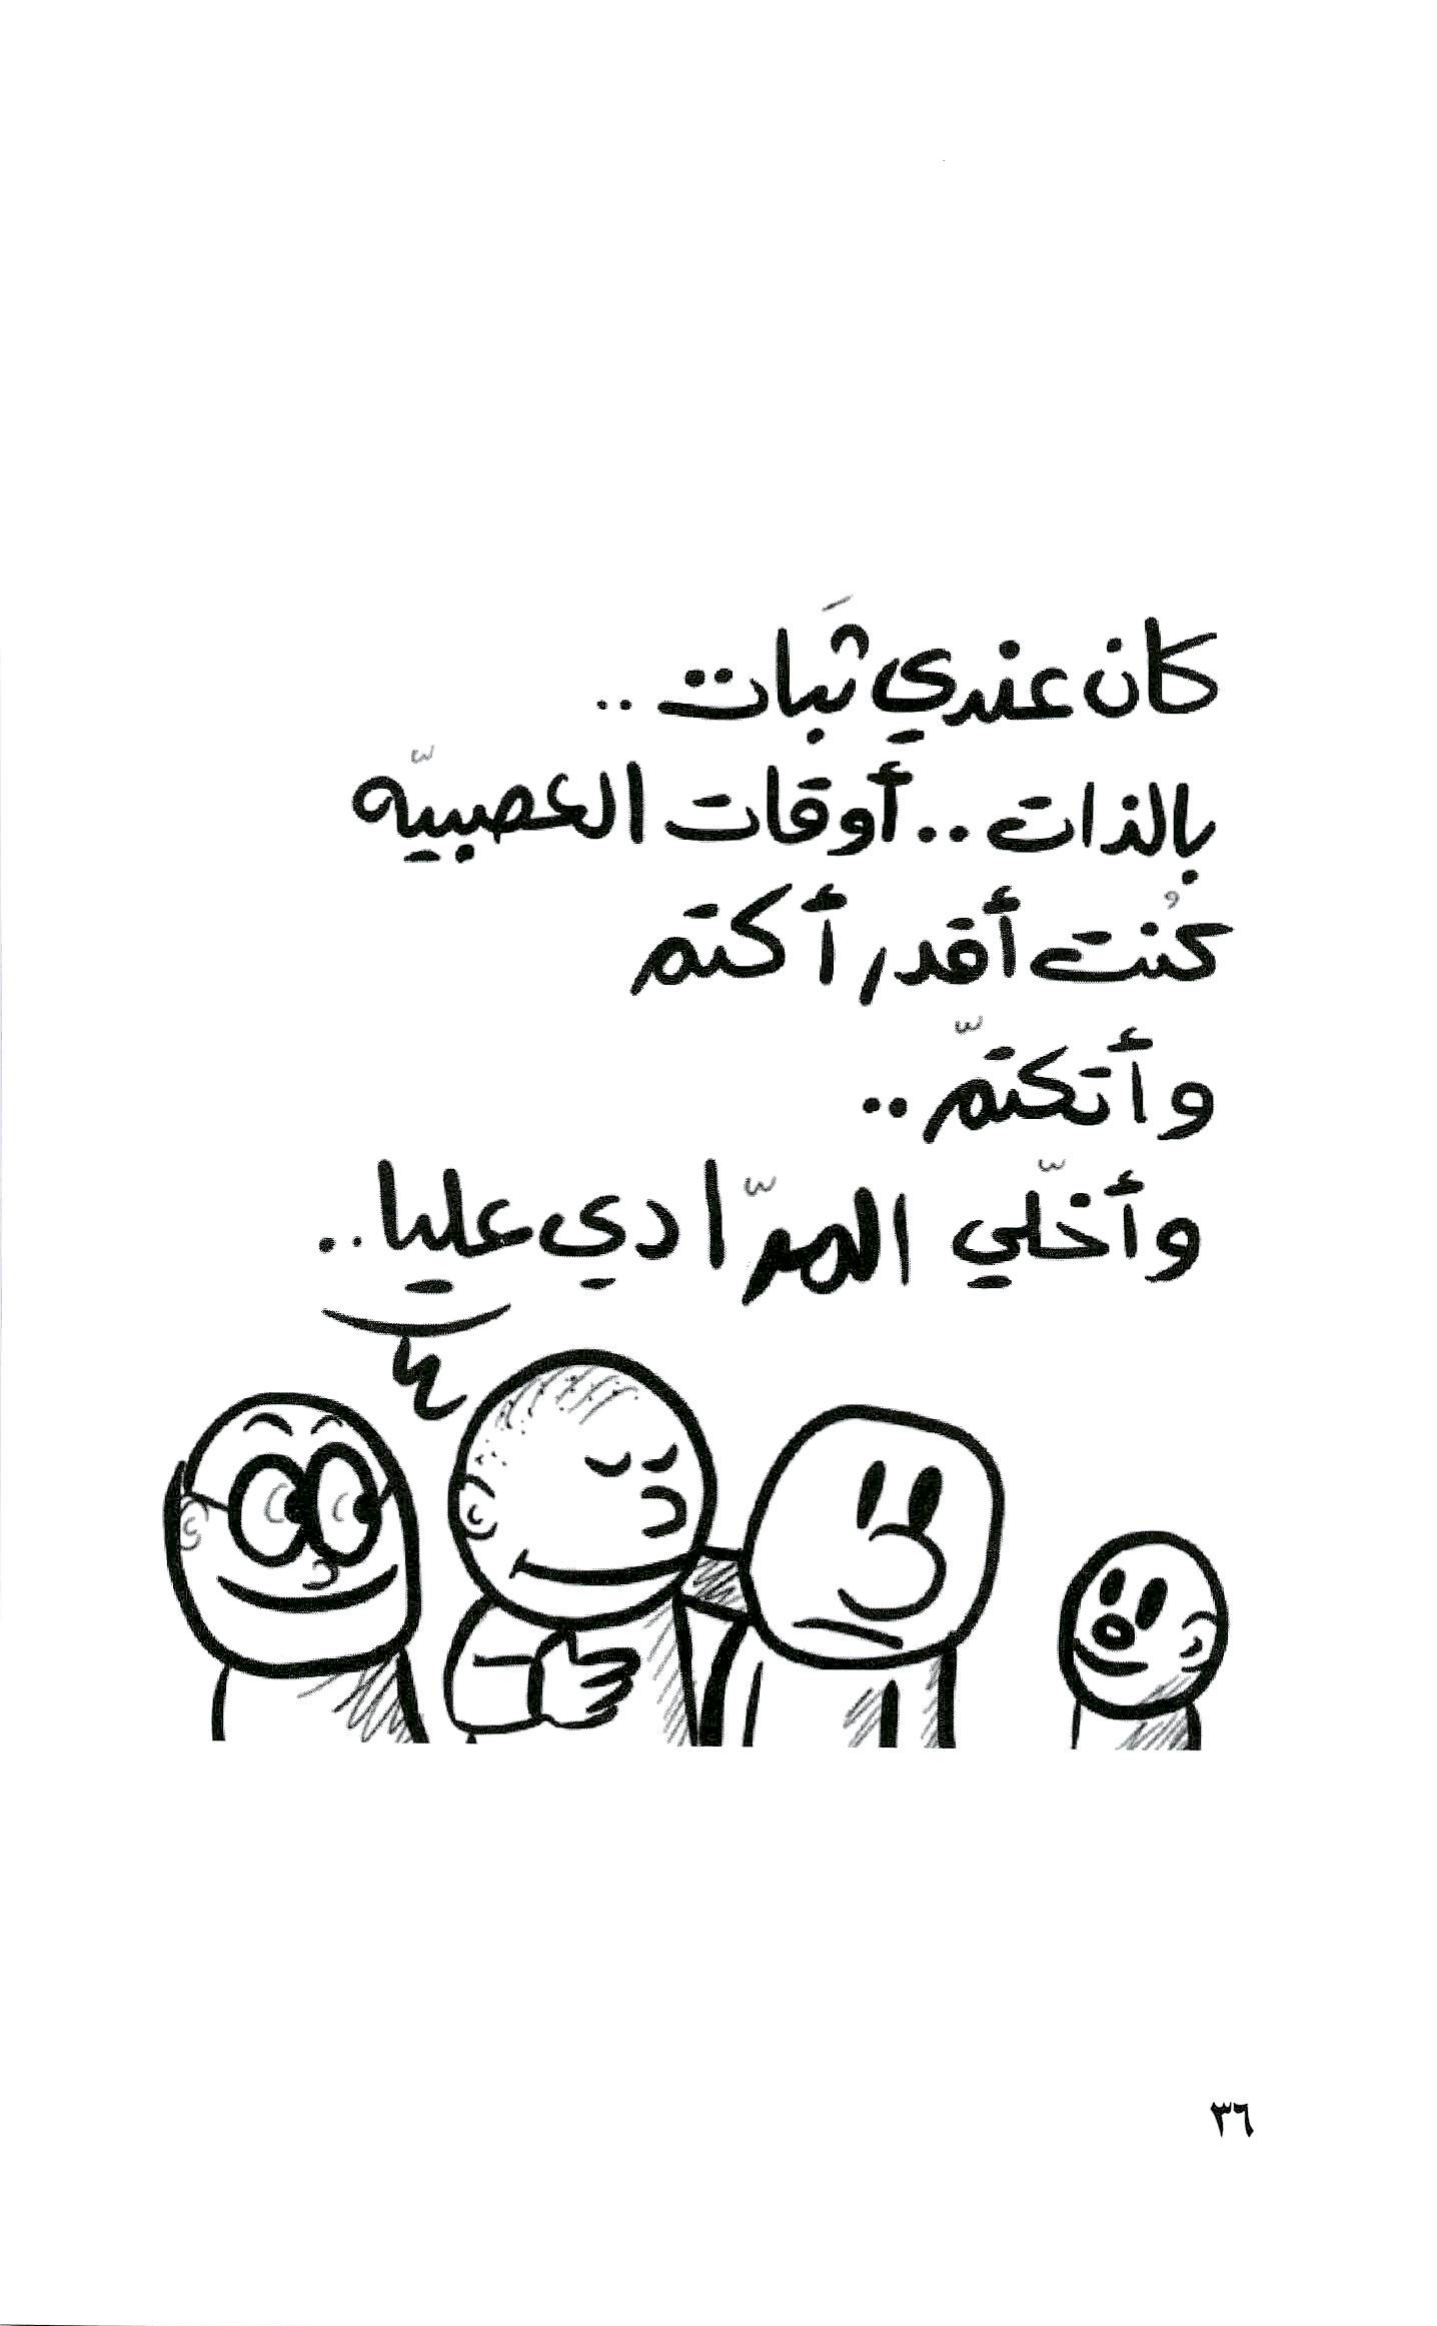 كان عندي ثَبات ..
بالذات .. أوقات العصبيّه
كُنت أقدر أكتم
وأتكتّم ..
وأخلّي المرّادي عليا ..
٣٦